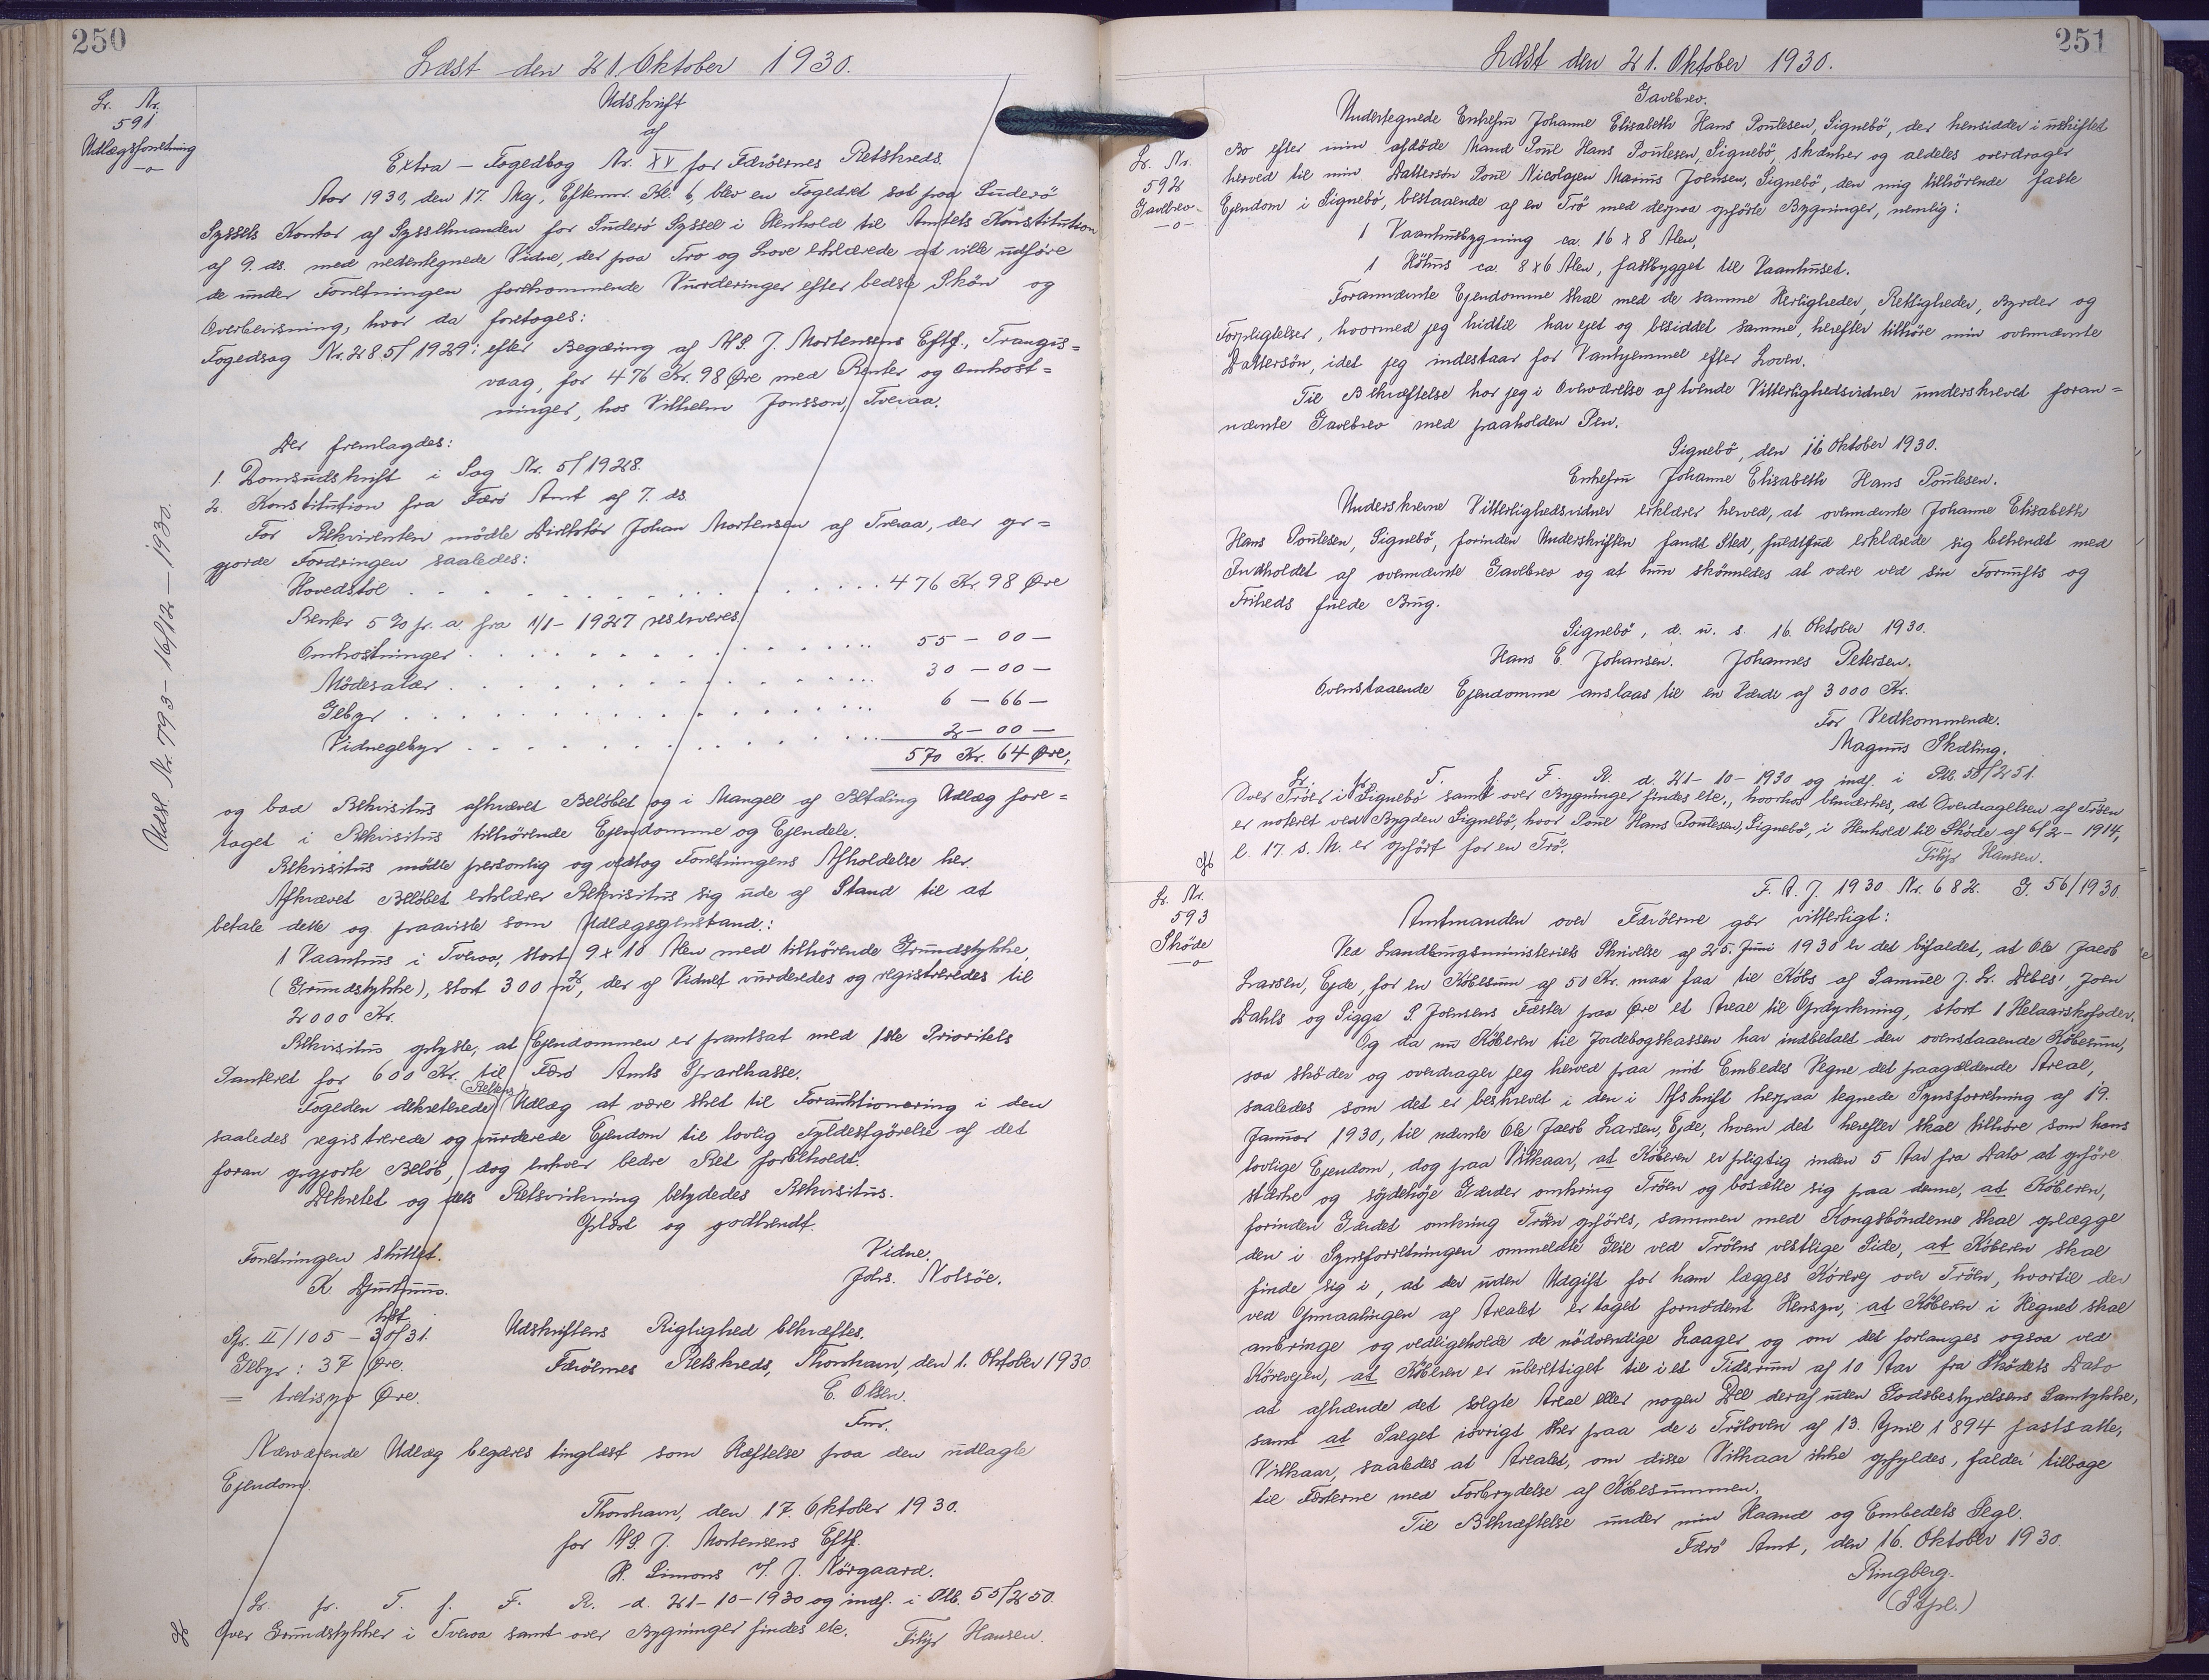 250
Læst den 21. Oktober 1930.
Lr. Nr.
591
Udlægsforretning
Udslettet Nr. 793 - 16/12 - 1930.
Udskrift
af
Extra - Fogedbog Nr. XV for Færöernes Retskreds.
Aar 1930, den 17. Maj, Efterm. Kl. 6, blev en Fogedret sat paa Suderö
Syssels Kontor af Sysselmanden for Suderö Syssel i Henhold til Amtets Konstitution
af 9. ds. med nedentegnede Vidne, der paa Tro og Love erklærede at ville udföre
de under Forretningen forekommende Vurderinger efter bedste Skön og
Overbevisning, hvor da foretoges:
Fogedsag Nr. 285/1929: efter Begæring af M.S. J. Mortensens Eftf., Trangis=
vaag, for 476 Kr. 98 Øre med Renter og Omkost=
ninger, hos Vilhelm Jonsson, Tveraa.
Der fremlagdes:
1. Domsudskrift i Sag Nr. 5/1928.
2. Konstitution fra Færö Amt af 7. ds.
For Rekvirenten mödte Direktör Johan Mortensen af Tveraa, der op=
gjorde Fordringen saaledes:
Hovedstol . . . . 476 Kr. 98 Øre
Renter 5 % pr. a. fra 1/1 - 1927 reserveres.
Omkostninger . . . . 55 - 00 -
Mödesalær . . . . 30 - 00 -
Gebyr . . . . 6 - 66 -
Vidnegebyr . . . . 2 - 00 -
570 Kr. 64 Øre,
og bad Rekvisitus afkrævet Belöbet og i Mangel af Betaling Udlæg fore=
taget i Rekvisitus tilhörende Ejendomme og Ejendele.
Rekvisitus mödte personlig og vedtog Forretningens Afholdelse her.
Afkrævet Belöbet erklærer Rekvisitus sig ude af Stand til at
betale dette og paaviste som Udlægsgenstand:
1 Vaanhus i Tveraa, stort 9 x 10 Alen med tilhörende Grundstykke,
(Grundstykke), stort 300 m², der af Vidnet vurderedes og registreredes til
2000 Kr.
Rekvisitus oplyste, at Ejendommen er pantsat med 1ste Prioritets
Panteret for 600 Kr. til Færö Amts Sparekasse.
(Retten)
Fogeden dekreterede Udlæg at være sket til Forauktionering i den
saaledes registrerede og vurderede Ejendom til lovlig Fyldestgörelse af det
foran opgjorte Belöb, dog enhver bedre Ret forbeholdt.
Dekretet og dets Retsvirkning betydedes Rekvisitus.
Oplæst og godkendt.
Forretningen sluttet.
Vidne.
K. Djurhuus.
Johs. Nolsöe.
kst.
Spr. II/105 - 30/31.
Udskriftens Rigtighed bekræftes.
Gebyr: 37 Øre.
Færöernes Retskreds, Thorshavn, den 1. Oktober 1930.
= tretisyv Øre.
E. Olsen.
Fmr.
Nærværende Udlæg begæres tinglæst som Hæftelse paa den udlagte
Ejendom.
Thorshavn, den 17. Oktober 1930.
for M.S. J. Mortensens Eftf.
R. Simons v/ J. Nörgaard.
Lr. pr. T. f. F. R. d. 21-10-1930 og indf. i Ptb. 55/250.
Over Grundstykker i Tveraa samt over Bygninger findes etc. Filip Hansen.
251
Læst den 21. Oktober 1930.
Lr. Nr.
592
Gavebrev
Gavebrev.
Undertegnede Enkefru Johanne Elisabeth Hans Poulesen, Signebö, der hensidder i uskiftet
Bo efter min afdöde Mand Poul Hans Poulesen, Signebö, skænker og aldeles overdrager
herved til min Dattersön Poul Nicolajen Marius Joensen, Signebö, den mig tilhörende faste
Ejendom i Signebö, bestaaende af en Trö med derpaa opförte Bygninger, nemlig:
1 Vaanhusbygning ca. 16 x 8 Alen,
1 Höhus ca. 8 x 6 Alen, fastbygget til Vaanhuset.
Forannævnte Ejendomme skal med de samme Herligheder, Rettigheder, Byrder og
Forpligtelser, hvormed jeg hidtil har ejet og besiddet samme, herefter tilhöre min ovennævnte
Dattersön, idet jeg indestaar for Vanhjemmel efter Loven.
Til Bekræftelse har jeg i Overværelse af tvende Vitterlighedsvidner underskrevet foran=
nævnte Gavebrev med paaholden Pen.
Signebö, den 16 Oktober 1930.
Enkefru Johanne Elisabeth Hans Poulesen.
Underskrevne Vitterlighedsvidner erklærer herved, at ovennævnte Johanne Elisabeth
Hans Poulesen, Signebö, forinden Underskriften fandt Sted, fuldtud erklærede sig bekendt med
Indholdet af ovennævnte Gavebrev og at hun skönnedes at være ved sin Fornufts og
Friheds fulde Brug.
Signebö, d. u. s. 16. Oktober 1930.
Hans E. Johansen. Johannes Petersen.
Ovenstaaende Ejendomme anslaas til en Værdi af 3000 Kr.
For Vedkommende.
Magnus Skæling.
Lr. pr. T. f. F. R. d. 21-10-1930 og indf. i Ptb. 55/251.
Over Tröer i Signebö samt over Bygninger findes etc., hvorhos bemærkes, at Overdragelsen af Tröen
er noteret ved Bygden Signebö, hvor Poul Hans Poulesen, Signebö, i Henhold til Sköde af 6/2 - 1914,
l. 17. s. M. er opfört for en Trö.
Filip Hansen.
Lr. Nr.
593
Sköde
F. A. J. 1930 Nr. 682. G. 56/1930.
Amtmanden over Færöerne gör vitterligt:
Ved Landbrugsministeriets Skrivelse af 25. Juni 1930 er det bifaldet, at Ole Jacob
Larsen, Ejde, for en Köbesum af 50 Kr. maa faa til Köbs af Samuel J. Lr. Debes', Joen
Dahls og Sigga S. Joensens Fæster paa Øre et Areal til Opdyrkning, stort 1 Helaarskofoder.
Og da nu Köberen til Jordebogskassen har indbetalt den ovenstaaende Köbesum,
saa sköder og overdrager jeg herved paa mit Embedes Vegne det paagældende Areal,
saaledes som det er beskrevet i den i Afskrift herpaa tegnede Synsforretning af 19.
Januar 1930, til nævnte Ole Jacob Larsen, Ejde, hvem det herefter skal tilhöre som hans
lovlige Ejendom, dog paa Vilkaar, at Köberen er pligtig inden 5 Aar fra Dato at opföre
stærke og söjdehöje Gærder omkring Tröen og bosætte sig paa denne, at Köberen,
forinden Gærdet omkring Tröen opföres, sammen med Kongsbönderne skal oplægge
den i Synsforretningen ommeldte Geil ved Tröens vestlige Side, at Köberen skal
finde sig i, at der uden Udgift for ham lægges Körevej over Tröen, hvortil der
ved Opmaalingen af Arealet er taget fornödent Hensyn, at Köberen i Hegnet skal
anbringe og vedligeholde de nödvendige Laager og om det forlanges ogsaa ved
Körevejen, at Köberen er uberettiget til i et Tidsrum af 10 Aar fra Sködets Dato
at afhænde det solgte Areal eller nogen Del deraf uden Godsbestyrelsens Samtykke,
samt at Salget iövrigt sker paa de i Tröloven af 13. April 1894 fastsatte,
Vilkaar, saaledes at Arealet, om disse Vilkaar ikke opfyldes, falder tilbage
til Fæsterne med Forbrydelse af Köbesummen.
Til Bekræftelse under min Haand og Embedets Segl.
Færö Amt, den 16. Oktober 1930.
Ringberg.
(Stpl.)